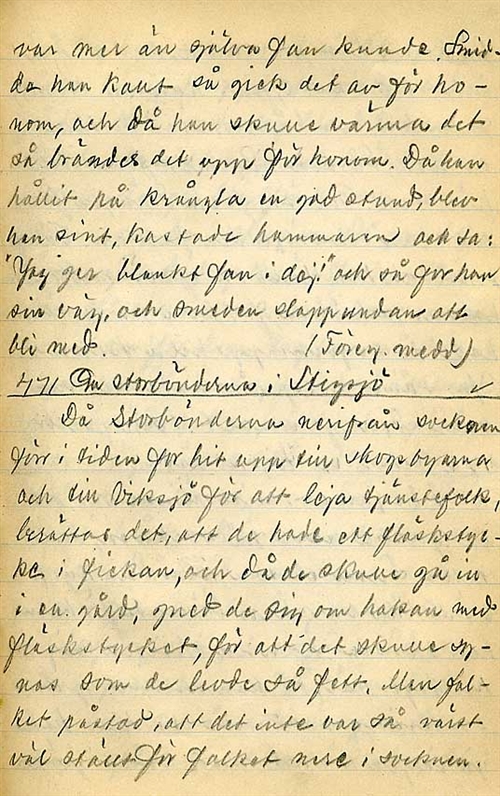 var mer än själva fan kunde. Smid-
de han kaut så gick det av för ho-
nom, och då han skulle värma det
så brändes det upp för honom. Då han
hållit på krångla en god stund, blev
han sint, kastade hammaren och sa:
"Jag ger blankt fan i dej!" och så for han
sin väg, och smeden slapp undan att
bli med. (Föreg. medd)
471 Om storbönderna i Stigsjö
Då storbönderna nerifrån socknen
förr i tiden for hit upp till skogsbyarna
och till Viksjö för att leja tjänstefolk,
berättas det, att de hade ett fläskstyc-
ke i fickan, och då de skulle gå in
i en gård, gned de sig om hakan med
fläskstycket, för att det skulle sy-
nas som de levde så fett. Men fol-
ket påstod, att det inte var så värst
väl ställt för folket nere i socknen.